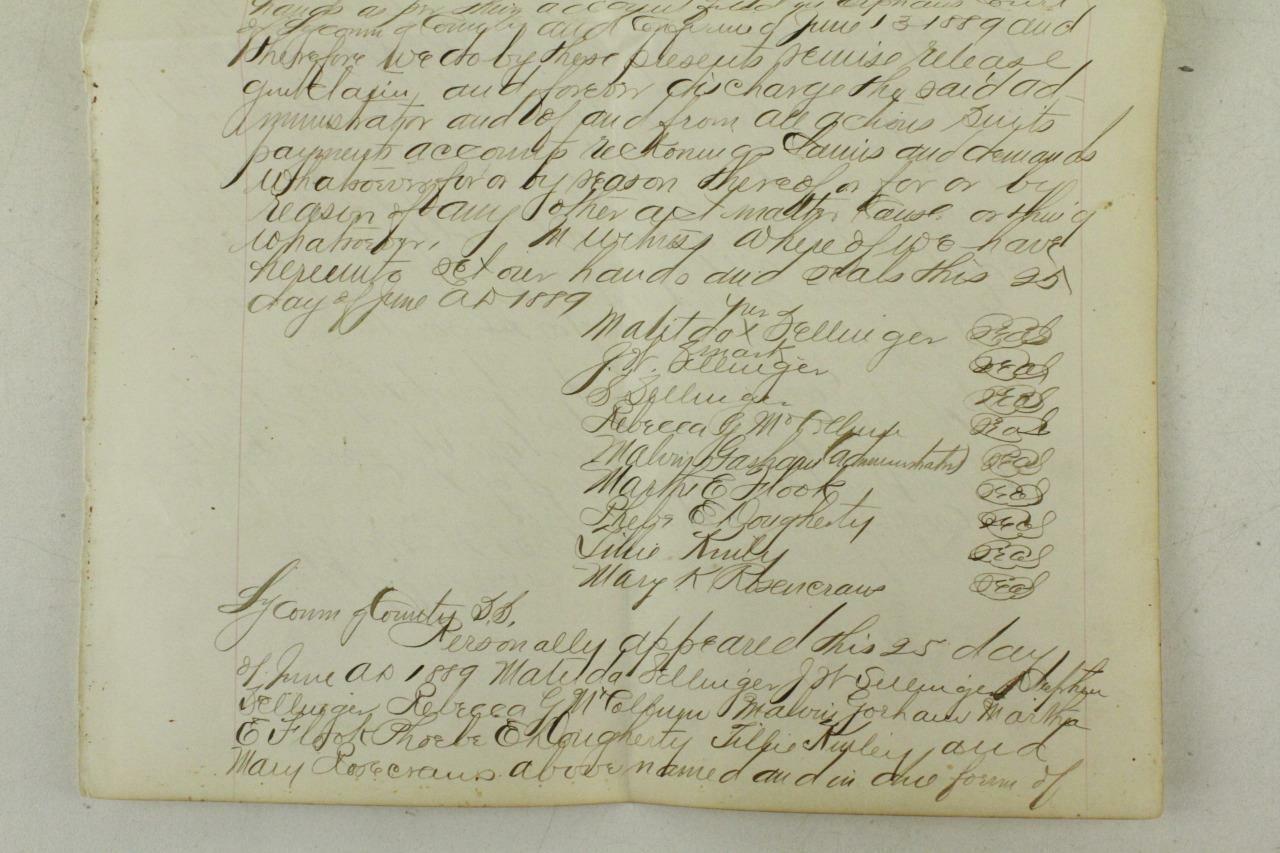 hands as per account filed in Orphans Court
of Lycoming County and Confirmed June 13 1889 and
therefore we do by these presents remise release
quitclaim, and forever discharge the said ad
ministrator and of and from all actions Suits
payments accounts reckonings Claims and demands
Whatsoever for or by reason thereof or for or by
reason of any other act matter cause or thing
whatsoever, In witness Whereof we have
hereunto set our hands and seals this 25
day of June AD 1889
her
Matilda x Zellinger Seal
mark
J. W. Zellinger Seal
S Zellinger Seal
Rebecca G Seal
Malvin (administrator) Seal
Martha E Flook Seal
Phebe E Dougherty Seal
Tillie Seal
Mary K Rosencrans Seal
Lycoming County S.S.
Personally appeared this 25 day
of June AD 1889 Matilda Zellinger J W Zellinger Stephen
Zellinger Rebecca G Malvin Gorham Martha
E Flook Phoebe E Dougherty Tillie and
Mary Rosecrans above named and in due form of